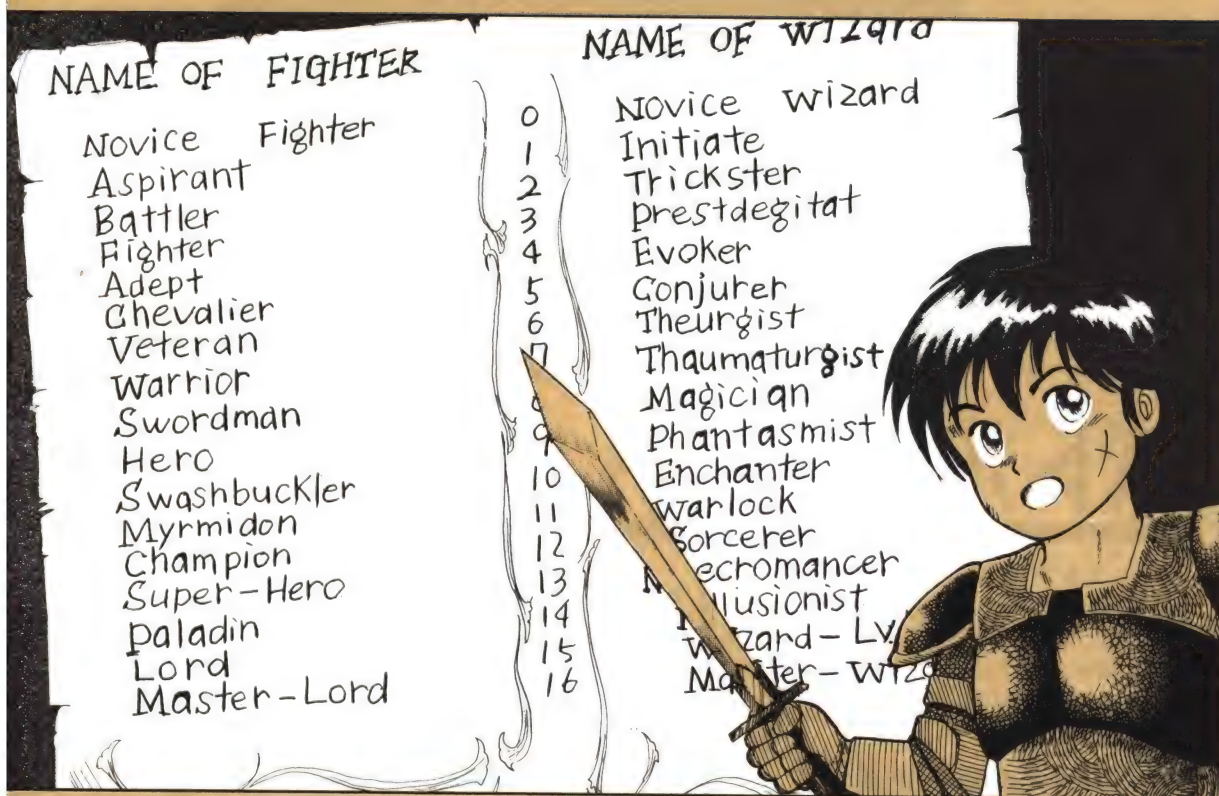 NAME OF FIGHTER
Novice Fighter
Aspirant
Battler
Fighter
Adept
Chevalier
Veteran
Warrior
Swordman
Hero
Swashbuckler
Myrmidon
Champion
Super-Hero
Paladin
Lord
Master-Lord
0
1
2
3
4
5
6
7
8
9
10
11
12
13
14
15
16
NAME OF Wizard
Novice Wizard
Initiate
Trickster
Prestdegitat
Evoker
Conjurer
Theurgist
Thaumaturgist
Magician
Phantasmist
Enchanter
Warlock
Sorcerer
Necromancer
Illusionist
Wizard-Lv
Master-Wiza